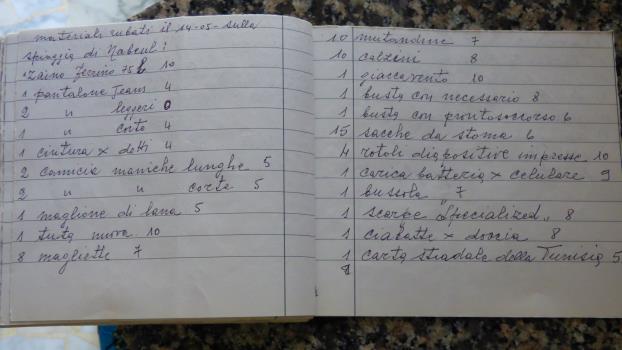 materiali rubati il 14-05- sulla
spiaggia di Nabeul:
zaino Ferrino 75 l 10
1 pantalone Jeans 4
2 " leggeri 0
1 " corto 4
1 cintura x detti 4
2 camicia maniche lunghe 5
2 " " corte 5
1 maglione di lana 5
1 tuta nuova 10
8 magliette 7
10 mutandine 7
10 calzini 8
1 giaccavento 10
1 busta con necessario 8
1 busta con prontosoccorso 6
15 sacche da stoma 6
4 rotoli diapositive impresse 10
1 carica batteria x cellulare 9
1 bussola 7
1 scarpe "Specialized" 8
1 ciabatte x doccia 8
1 carta stradale della Tunisia 5